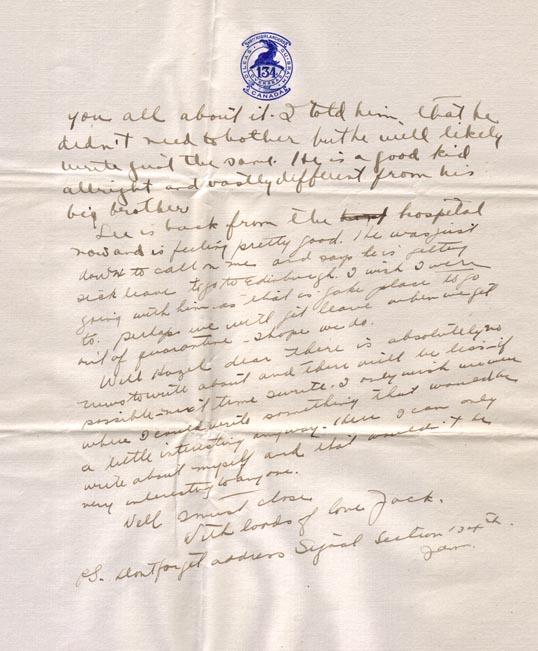 134
CANADA
you all about it. I told him that he
didn't need to bother but he will likely
write just the same. He is a good kid
allright and vastly different from his
big brother
Lee is back from the hospital
now and is feeling pretty good. He was just
down to call on me and says he is getting
sick leave to go to Edinburgh. I wish I were
going with him as that is place to go
to. perhaps we will get leave when we get
out of quarantine - I hope we do.
Well Hazel dear there is absolutely no
news to write about and there will be less if
possible next time I write. I only wish we were
where I could write something that would be
a little interesting anyway. Here I can only
write about myself and that wouldn't be
very interesting to anyone.
Well I must close
With loads of love Jack.
PS. Dont forget address Signal Section 134th.